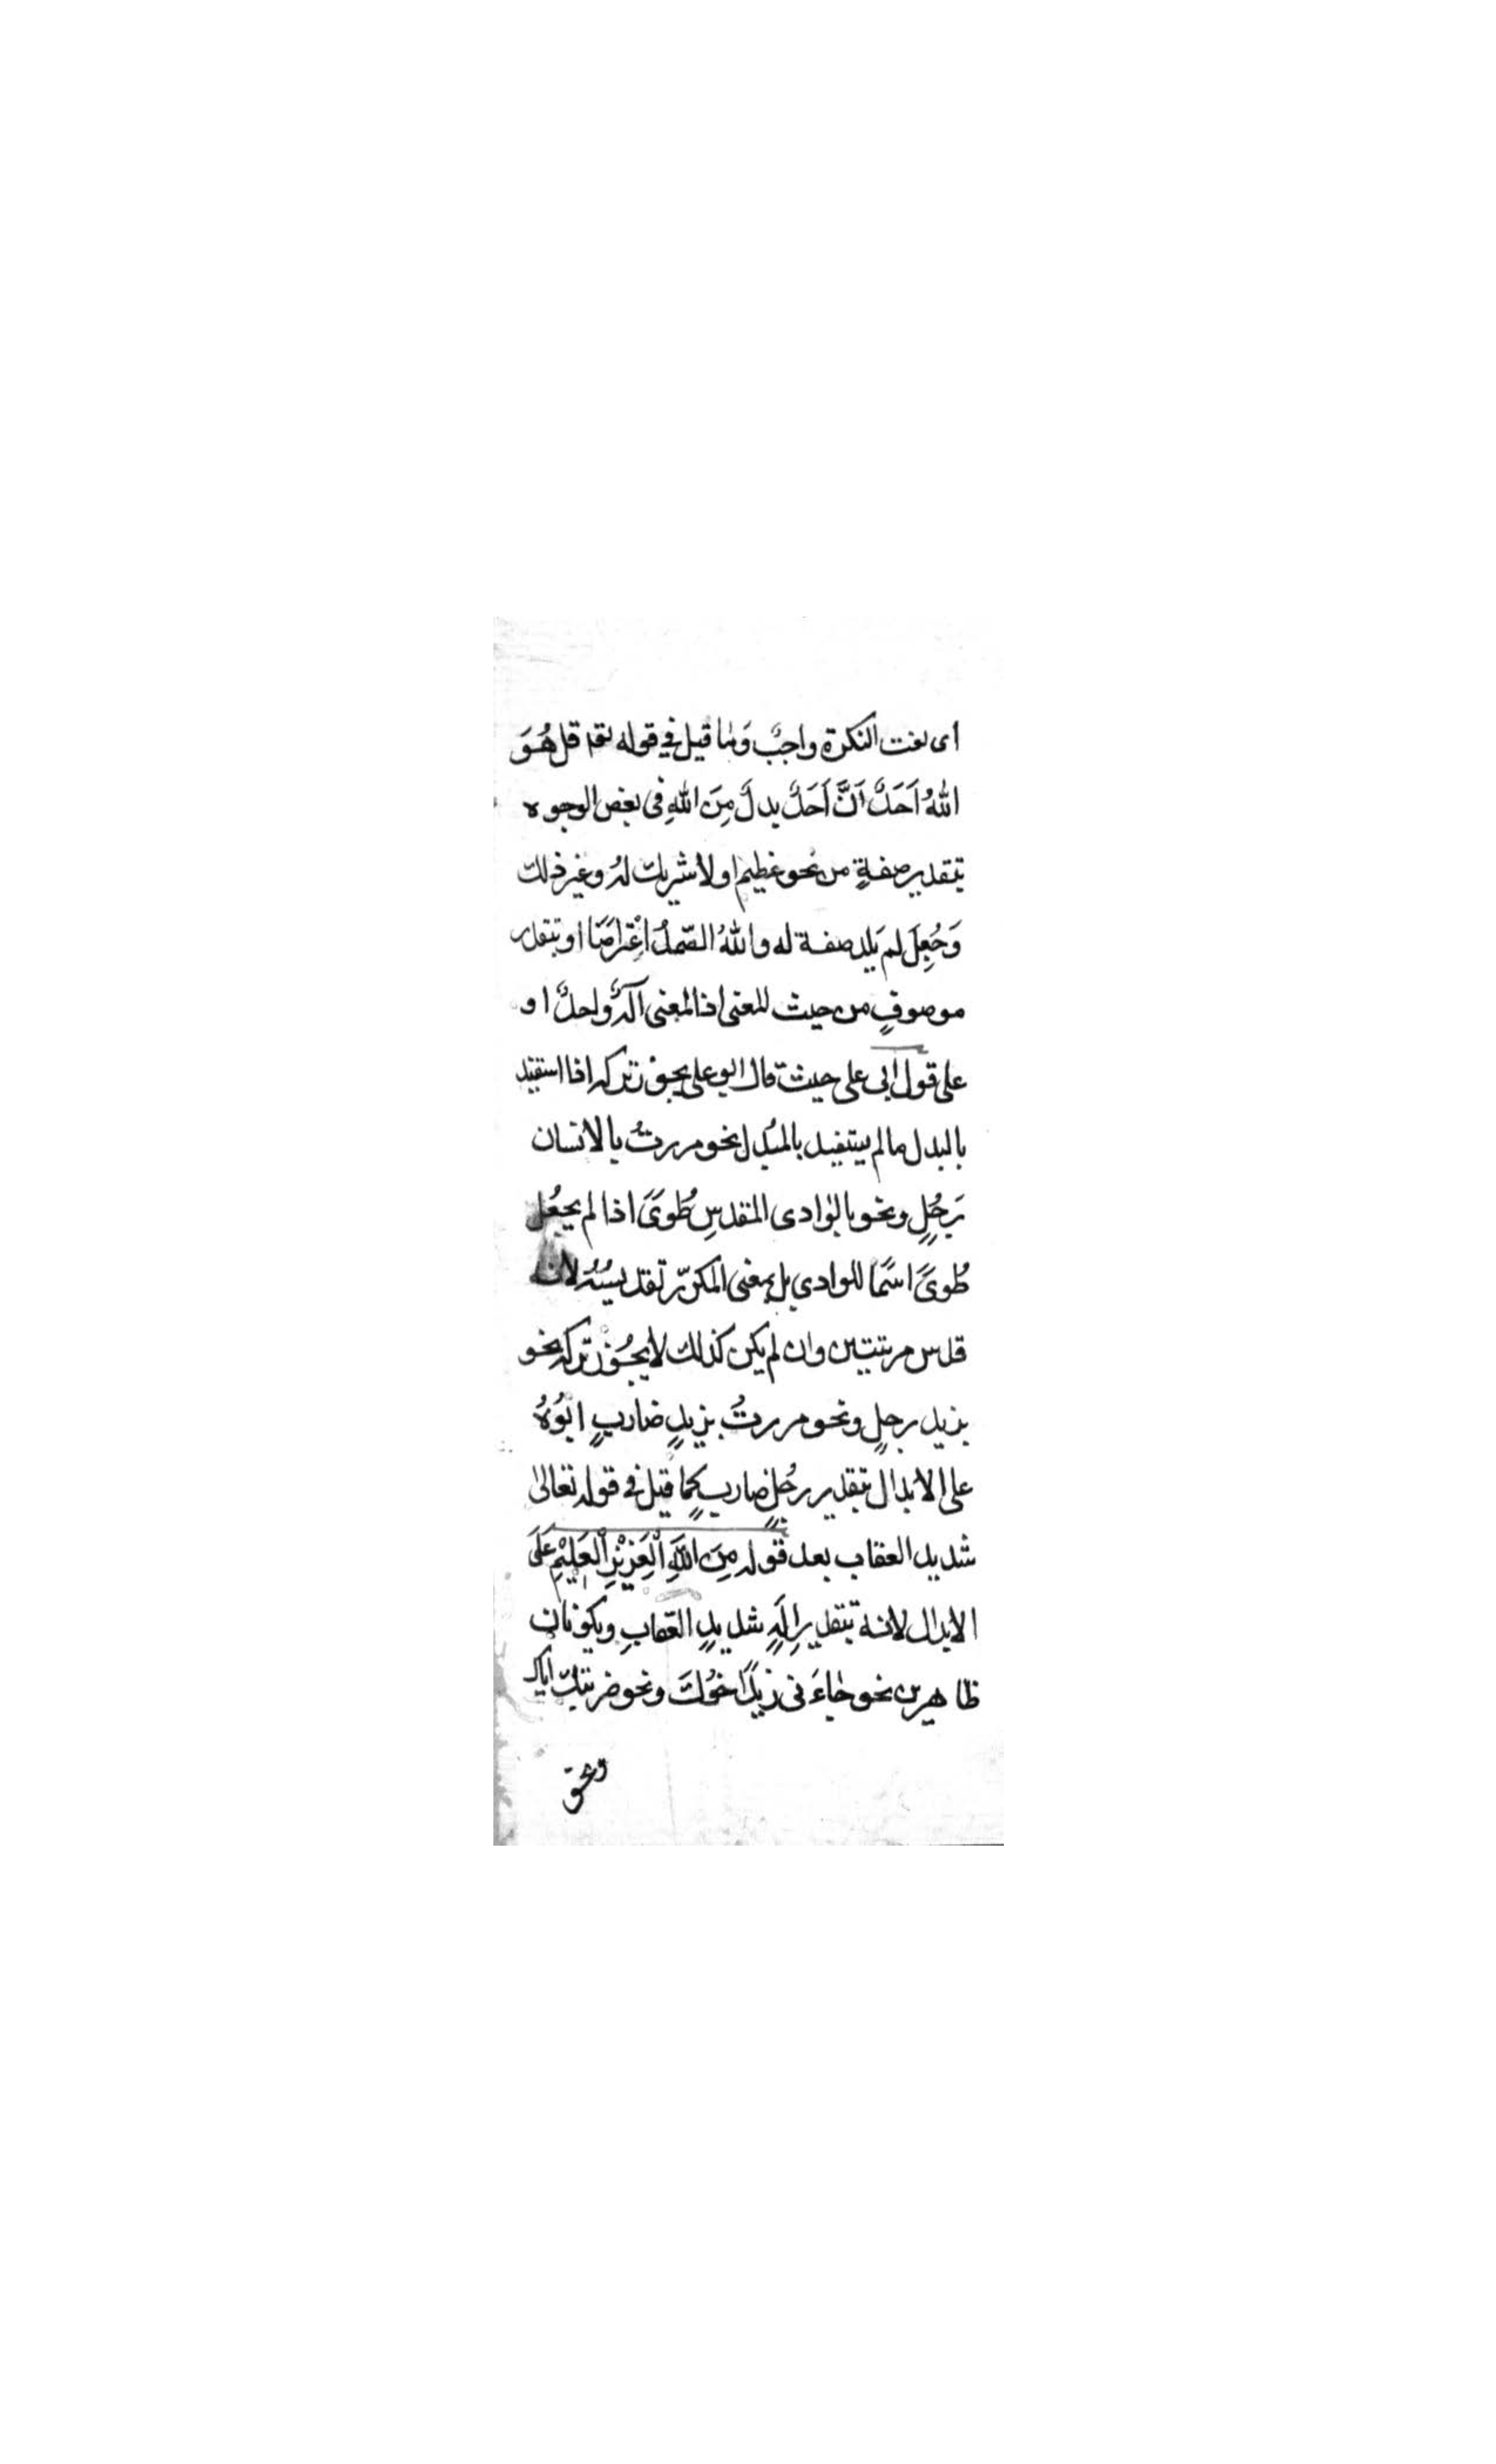 اى نعت النكرة واجبٌ وَما قيل فى قوله تعا قل هُوَ
اللهُ اَحَدٌ اَنَّ اَحَدٌ بدلٌ مِنَ اللهِ فى بعض الوجوه
بتقدير صفةٍ من نحو عظيم او لا شريك لهُ وغير ذلك
وَجُعِلَ لم يَلد صفة له واللهُ الصّمدُ اعْتراضًا او بتقدير
موصوفٍ من حيث المعنى اذ المعنى آلهٌ واحدٌ او
على قول ابى على حيث قال ابو على يجوز تركه اذا استفيد
بالبدل ما لم يستفيد بالمبدل نحو مررتُ بالانسان
رَجُلٍ ونحو بالوادى المقدسِ طُوىً اذا لم يجعُل
طُوىً اسمًا للوادى بل بمعنى المكرّر تقديسُهُ لانه
قدس مرتين وان لم يكن كذلك لا يجُوز تركه نحو
بزيد رجلٍ ونحو مررتُ بزيدٍ ضاربٍ ابُوهُ
على الابدال بتقدير رجُلٍ ضاربٍ كما قيل فى قوله تعالى
شديد العقاب بعد قوله مِنَ اللهِ الْعَزِيْزِ الْعَلِيْمِ عَلَى
الابدال لانه بتقدير اِلَهٍ شديدٍ العقابِ ويكونان
ظاهرين نحو جاءَنى زيدٌ اخُوكَ ونحو ضربتك اياك